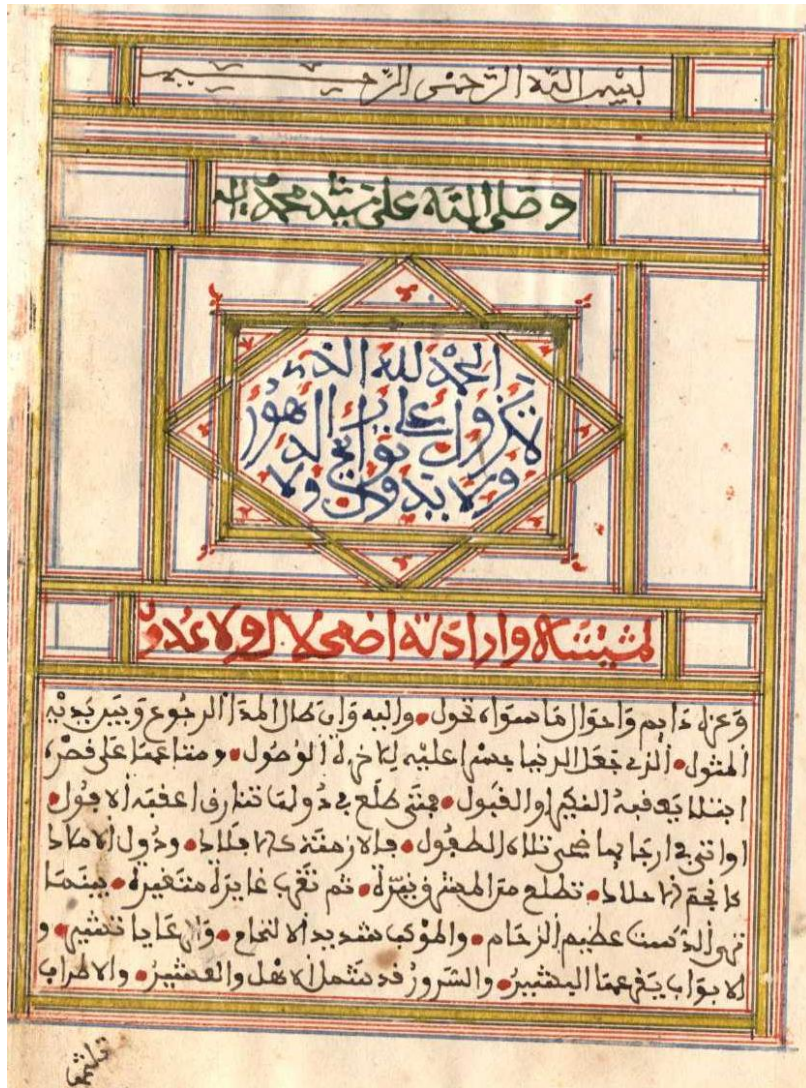 بسم الله الرحمن الرحيم
وصلى الله على سيدنا محمد وآله
الحمد لله الذي
لا تزول على مر الدهور
ولا بدولته ولا
لمشيئته وإرادته اضمحلال ولا عدول
وعزه دايم واحوال ما سواه تحول • واليه وان طال المدا الرجوع وبين يديه
المثول • الذي جعل الدنيا جسرا عليه للاخرة الوصول • ومتاعها على قصره
ابتلا يعقبه النكير او القبول • فمتى طلع بدولها شارق اعقبه الافول •
او اتى في ارجايها ضحى تلاه الطفول • فالازمنة
تطلع من المشرق نيرة • ثم تغرب غايرة متغيرة • بينما
ترى الدست عظيم الزحام • والموكب شديد الالتحام • والرعايا تشير • و
الابواب يقرعها البشير • والسرور قد شمل الاهل والعشير • والاطراب